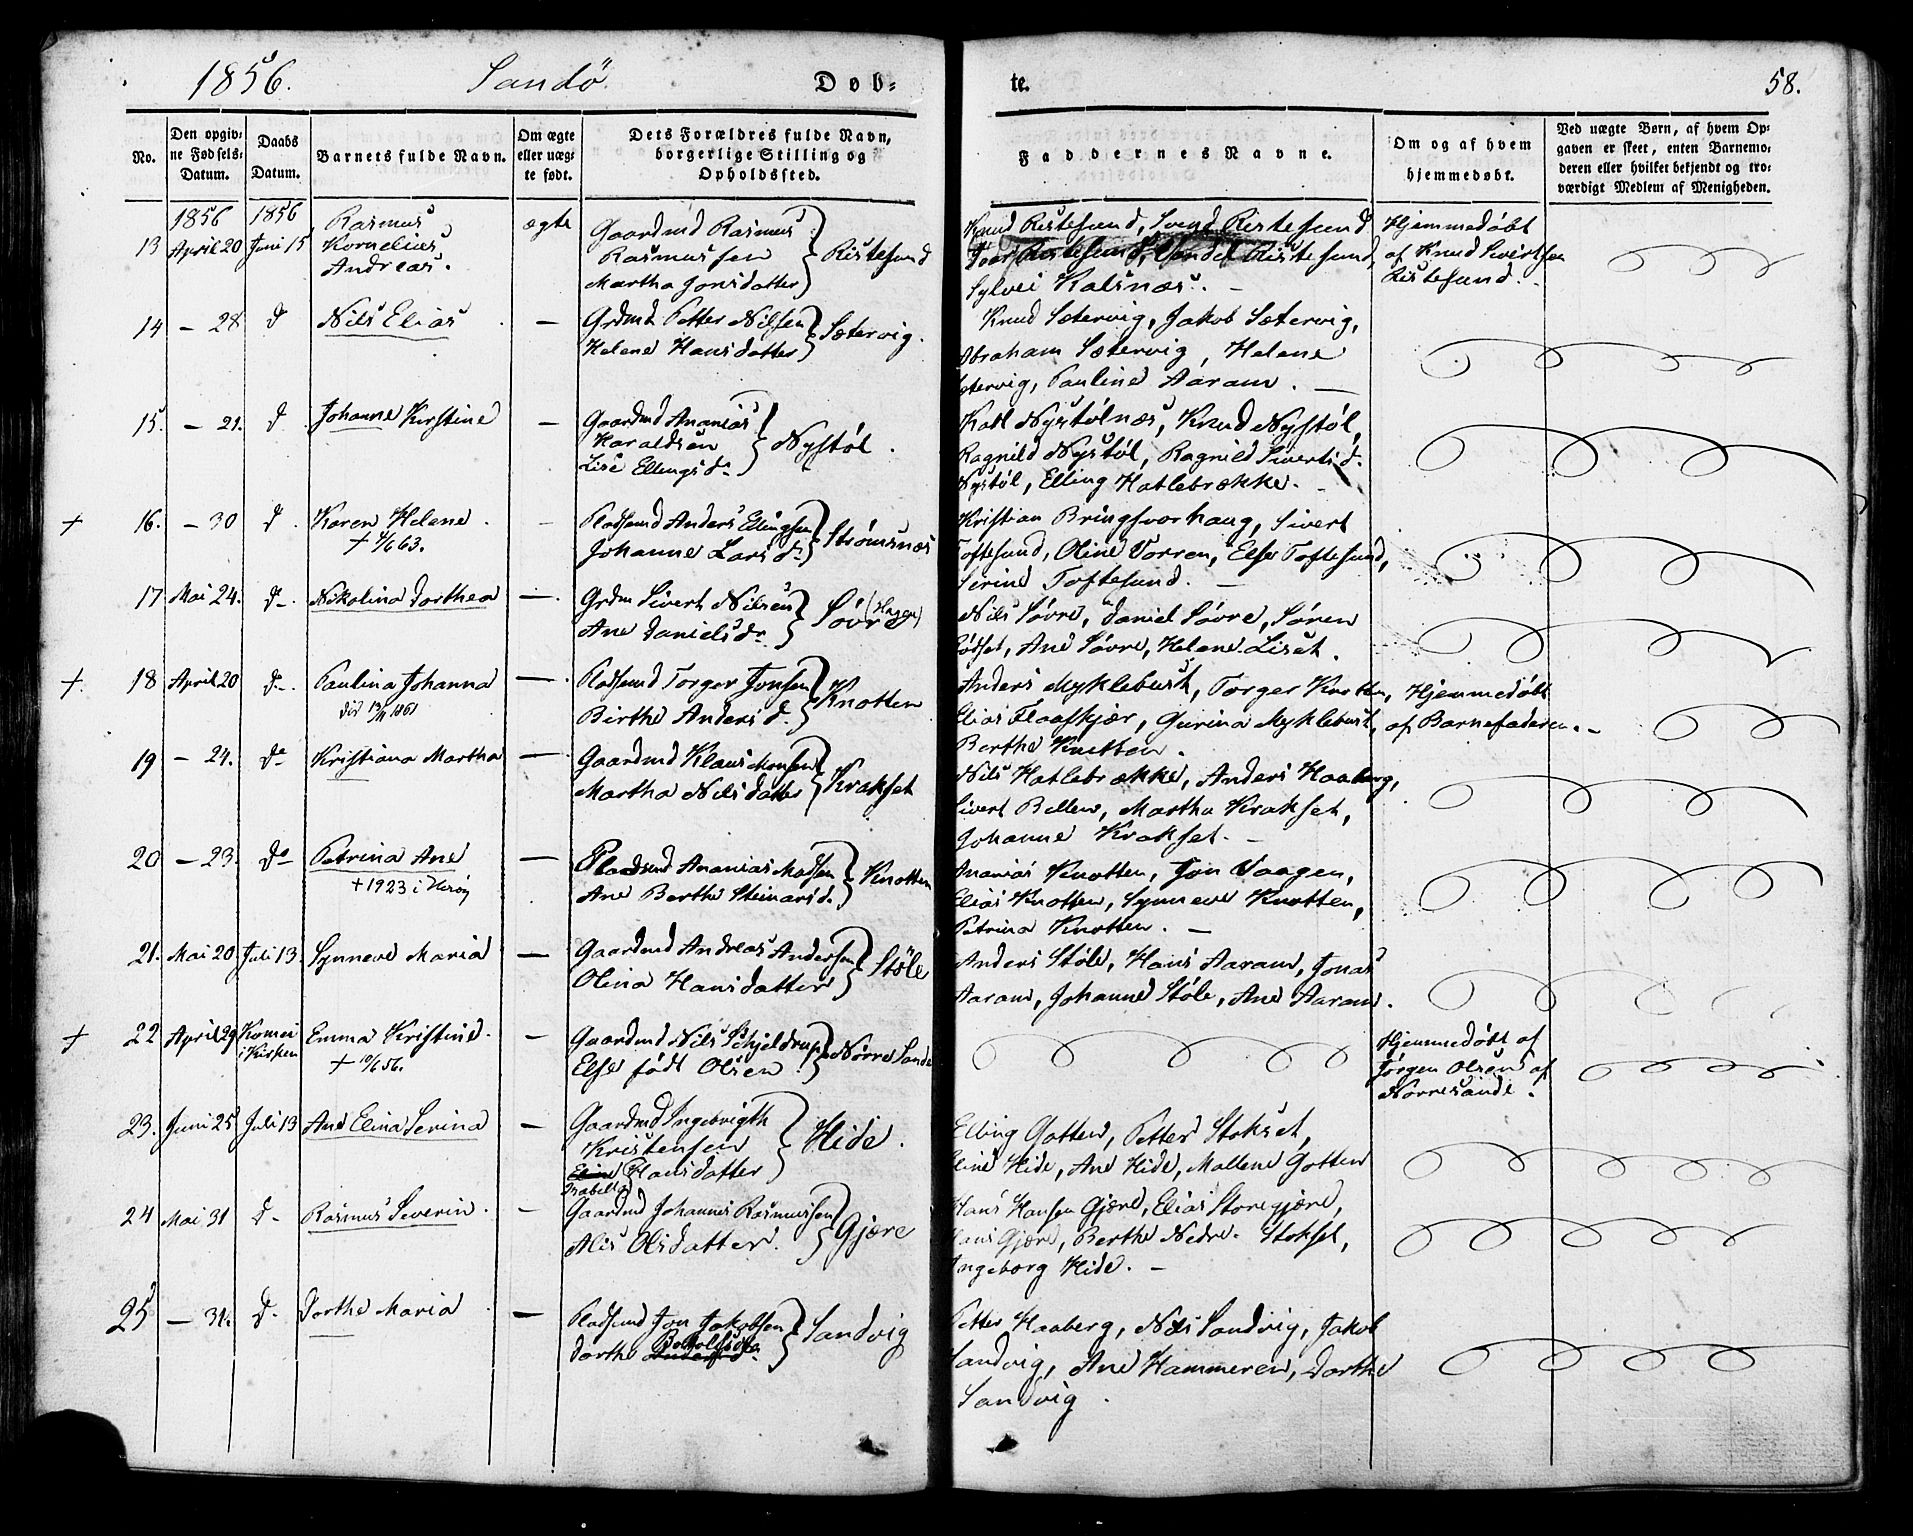 1856. Sandö. Døb-
te. 58.
No.
Den opgiv-
ne Fødsels-
Datum.
Daabs
Datum.
Barnets fulde Navn.
Om ægte
eller uæg-
te født.
Dets Forældres fulde Navn,
borgerlige Stilling og
Opholdssted.
Faddernes Navne.
Om og af hvem
hjemmedøbt.
Ved uægte Børn, af hvem Op-
gaven er skeet, enten Barnemo-
deren eller hvilket bekjendt og tro-
værdigt Medlem af Menigheden.
13
1856
April 20
1856
Juni 15
Rasmus
Kornelius
Andreas.
ægte
Gaardmd Rasmus
Rasmussen
Martha Jonsdatter
Ristesund
Knud Ristesund, Svend Ristesund
Ristesund, Ristesund,
Sylvei Kalsnæs. -
Hjemmedøbt
af Knud Sivertsen
Ristesund.
14 - 28 d Nils Elias -
Grdmd Petter Nilsen
Helene Hansdatter
Sætervig.
Knud Sætervig, Jakob Sætervig,
Abraham Sætervig, Helene
Sætervig, Pauline Aaram. -
15. - 21. d Johanne Kirstine -
Gaardmd Ananias
Haraldsen
Lise Ellingsd.
Nystøl.
Nystølnæs, Knud Nystøl,
Ragnild Nystøl, Ragnild Sivertsd.
Nystøl, Elling Hatlebrække. -
+ 16. - 30 d. Karen Helene. -
+ 4/6 63.
Pladsmd Anders Ellingsen
Johanne Larsd.
Strømsnæs
Kristian Bringsvorhaug, Sivert
Toftesund, Oline Vorren, Else Toftesund,
Serine Toftesund. -
17 Mai 24. d- Nikolina Dorthea -
Grdm Sivert Nilsen
Ane Danielsd.
Søvre (Hagen)
Nils Søvre, Daniel Søvre, Søren
Rødset, Ane Søvre, Helene Liset.
+ 18 April 20 d-. Paulina Johanna -
død 13/11 1861
Pladsmd Torger Jonsen
Birthe Andersd.
Knotten
Anders Myklebust, Torger Knotten,
Elias Flaaskjær, Gurina Myklebust,
Berthe Knotten.
Hjemmedøbt
af Barnefaderen. -
19 - 24. d- Kristiana Martha -
Gaardmd Klaus Monsen
Martha Nilsdatter
Krakset
Nils Hatlebrække, Anders Haaberg,
Sivert Bellen, Martha Krakset,
Johanne Krakset. -
20 - 23. d- Petrina Ane -
+ 1923 i Herøy
Pladsmd Ananias Madsen
Ane Berthe Steinarsd.
Knotten
Ananias Knotten, Jon Vaagen,
Elias Knotten, Synneve Knotten,
Petrina Knotten. -
21. Mai 20 Juli 13 Synneve Maria -
Gaardmd Andreas Andersen
Olina Hansdatter
Støle
Anders Støle, Hans Aaram, Jonas
Aaram, Johanne Støle, Ane Aaram.
+ 22 April 29 Kom ei
i Kirken
Emma Kristine. -
+ 10/6 56.
Gaardmd Nils Schjeldrup
Else født Olsen.
Nørre Sande
Hjemmedøbt af
Jørgen Olsen af
Nørresande.
23. Juni 25 Juli 13 Ane Elina Serina -
Gaardmd Ingebrigth
Kristensen
Elina Hansdatter
Isabella
Hide.
Elling Gotten, Petter Stokset,
Hide, Ane Hide, Mallene Gotten
24 Mai 31 d- Rasmus Severin. -
Gaardmd Johannes Rasmussen
Alis Olsdatter.
Gjære
Hans Hansen Gjære, Elias Storegjære,
Gjære, Berthe Nedre Stokset,
Ingeborg Hide. -
25 - 31. d. Dorthe Maria -
Pladsmd Jon Jakobsen
Dorthe
Sandvig
Petter Haaberg, Nils Sandvig, Jakob
Sandvig, Ane Hammeren, Dorthe
Sandvig.